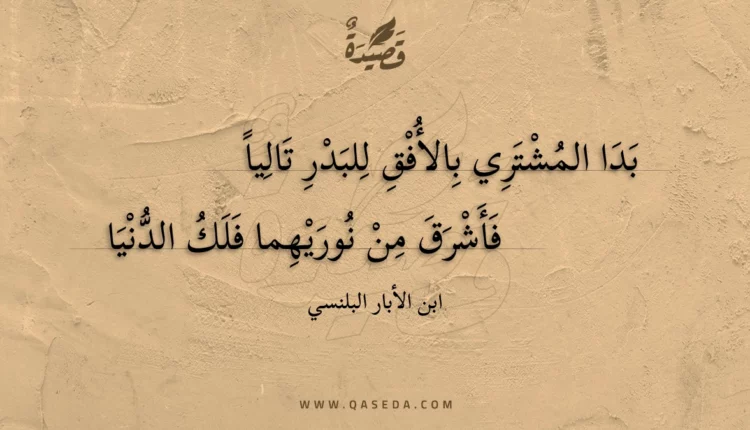 قَصِيدَةٌ
بَدَا المُشْتَرِي بِالأُفْقِ لِلبَدْرِ تَالِياً
فَأَشْرَقَ مِنْ نُورَيْهِما فَلَكُ الدُّنْيَا
ابن الأبار البلنسي
WWW.QASEDA.COM